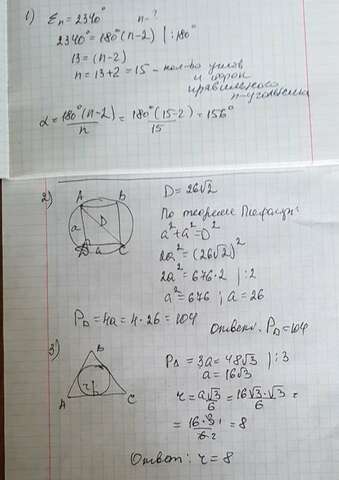 1) Σn = 2340° n - ?
2340° = 180° (n-2) | : 180°
13 = (n-2)
n = 13+2 = 15 - кол-во углов
и сторон
правильного
n-угольника
α = 180°(n-2)/n = 180°(15-2)/15 = 156°
2) A B
a D
D a C
D = 26√2
По теореме Пифагора:
a² + a² = D²
2a² = (26√2)²
2a² = 676·2 | : 2
a² = 676 ; a = 26
P□ = 4a = 4·26 = 104
Ответ: P□ = 104
3) B
r
A C
P△ = 3a = 48√3 | : 3
a = 16√3
r = a√3/6 = 16√3·√3/6 =
= 16·3/6 = 8
Ответ: r = 8